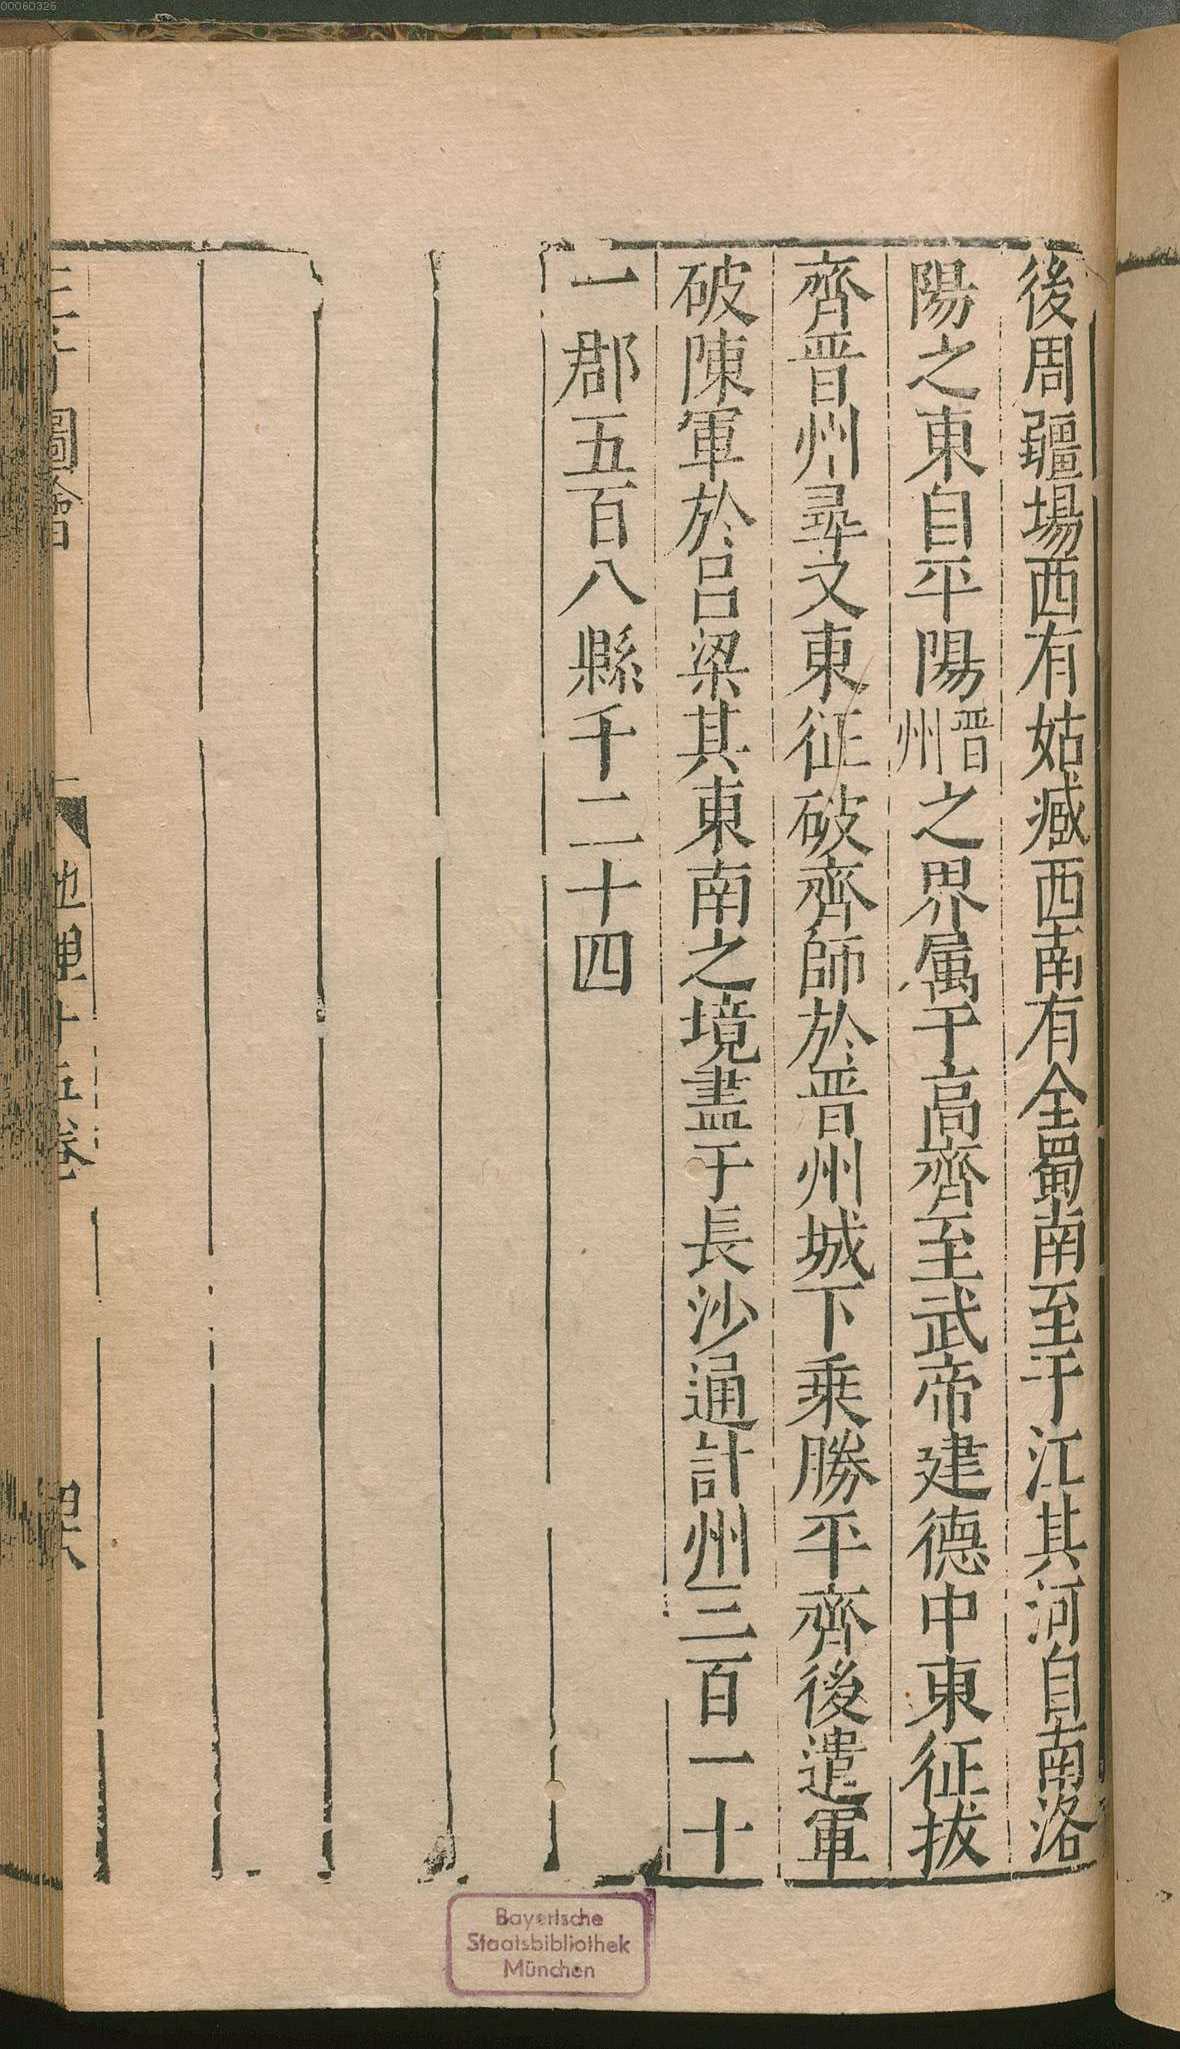 後周疆場西有姑臧西南有全蜀南至于江其河自南洛
陽之東自平陽晋州之界属于高齊至武帝建德中東征拔
齊晋州尋又東征破齊師於晋州城下乗勝平齊後遣軍
破陳軍於吕梁其東南之境盡于長沙通計州三百一十
一郡五百八縣千二十四
圖會
地理十五卷
Bayerische
Staatsbibliothek
München
00060325